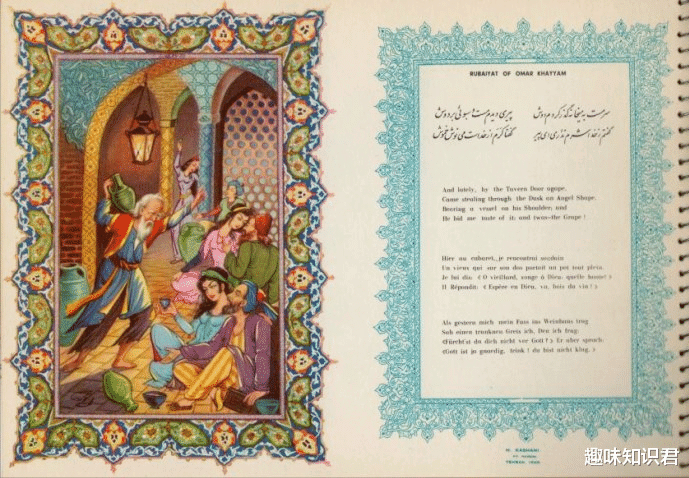 RUBAIYAT OF OMAR KHAYYAM
سرمست به میخانه گذر کردم دوش پیری دیدم مست و سبوئی بر دوش
گفتم ز خدا شرم نداری ای پیر گفتا کرم از خداست می نوش خموش
And lately, by the Tavern Door agape,
Came stealing through the Dusk an Angel Shape,
Bearing a vessel on his Shoulder; and
He bid me taste of it: and twas-the Grape !
Hier au cabaret, je rencontrai soudain
Un vieux qui sur son dos portait un pot tout plein.
Je lui dis: «O vieillard, songe à Dieu: quelle honte!»
Il Répondit: «Espère en Dieu, va, bois du vin!»
Als gestern mich mein Fuss ins Weinhaus trug
Sah einen trunknen Greis ich, Den ich frug:
«Fürcht'st du dich nicht vor Gott?» Er aber sprach:
«Gott ist ja gnaedig, trink! du bist nicht klug.»
H. KASHANI
TEHRAN, IRAN.
趣味知识君